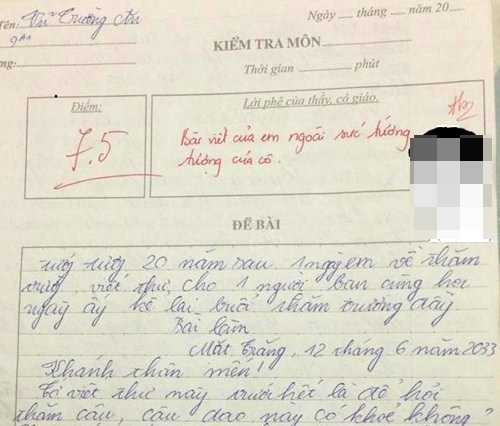 Tên: Vũ Trường An
9A1
Ngày ___ tháng ___ năm 20___
KIỂM TRA MÔN
ng:
Thời gian ______ phút
Điểm:
7.5
Lời phê của thầy, cô giáo.
Bài viết của em ngoài sức tưởng
tượng của cô.
ĐỀ BÀI
tưởng tượng 20 năm sau 1 ngày em về thăm
trường, viết thư cho 1 người bạn cùng học
ngày ấy kể lại buổi thăm trường đầy
Bài làm
Mặt Trăng, 12 tháng 6 năm 2033
Khanh thân mến!
Tớ viết thư này trước hết là để hỏi
thăm cậu, cậu dạo này có khoẻ không